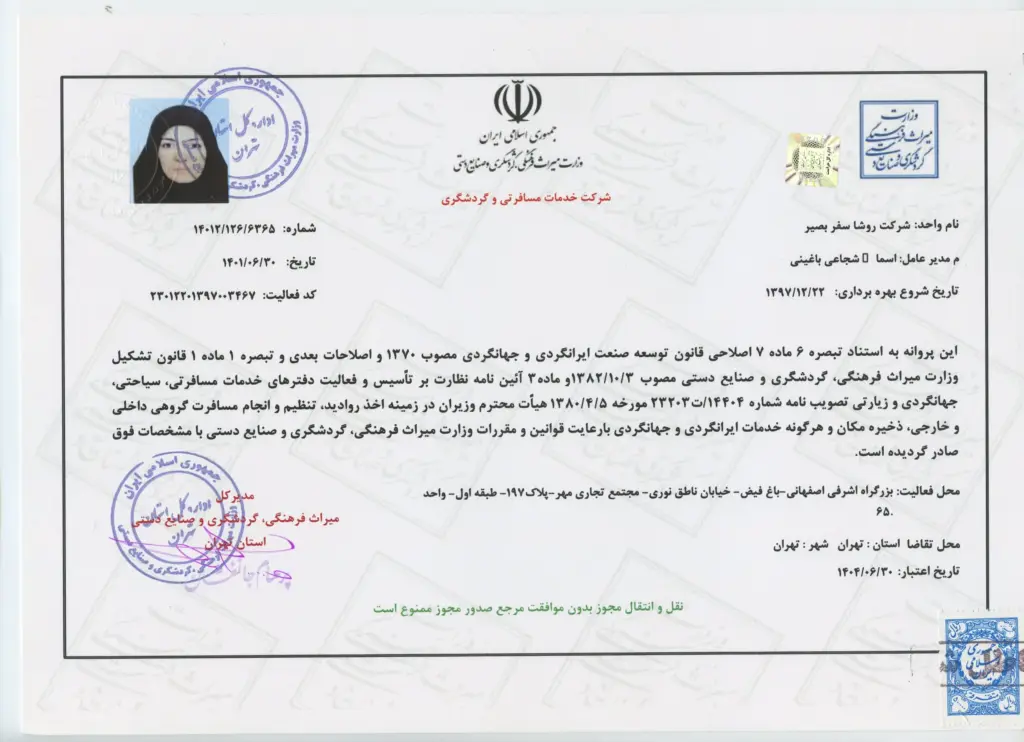 جمهوری اسلامی ایران
وزارت میراث فرهنگی، گردشگری و صنایع دستی
شرکت خدمات مسافرتی و گردشگری
وزارت
میراث فرهنگی
گردشگری و صنایع دستی
جمهوری اسلامی ایران
اداره کل استان
تهران
نام واحد: شرکت روشا سفر بصیر
م مدیر عامل: اسما ▯ شجاعی باغینی
تاریخ شروع بهره برداری: ۱۳۹۷/۱۲/۲۲
شماره: ۱۴۰۱۲/۱۲۶/۶۳۶۵
تاریخ: ۱۴۰۱/۰۶/۳۰
کد فعالیت: ۲۳۰۱۲۲۰۱۳۹۷۰۰۳۴۶۷
این پروانه به استناد تبصره ۶ ماده ۷ اصلاحی قانون توسعه صنعت ایرانگردی و جهانگردی مصوب ۱۳۷۰ و اصلاحات بعدی و تبصره ۱ ماده ۱ قانون تشکیل
وزارت میراث فرهنگی، گردشگری و صنایع دستی مصوب ۱۳۸۲/۱۰/۳و ماده۳ آئین نامه نظارت بر تأسیس و فعالیت دفترهای خدمات مسافرتی، سیاحتی،
جهانگردی و زیارتی تصویب نامه شماره ۱۴۴۰۴/ت۲۳۲۰۳ مورخه ۱۳۸۰/۴/۵ هیأت محترم وزیران در زمینه اخذ روادید، تنظیم و انجام مسافرت گروهی داخلی
و خارجی، ذخیره مکان و هرگونه خدمات ایرانگردی و جهانگردی بارعایت قوانین و مقررات وزارت میراث فرهنگی، گردشگری و صنایع دستی با مشخصات فوق
صادر گردیده است.
محل فعالیت: بزرگراه اشرفی اصفهانی-باغ فیض- خیابان ناطق نوری- مجتمع تجاری مهر-پلاک۱۹۷- طبقه اول- واحد
۶۵.
محل تقاضا استان : تهران شهر : تهران
تاریخ اعتبار: ۱۴۰۴/۰۶/۳۰
مدیرکل
میراث فرهنگی، گردشگری و صنایع دستی
استان تهران
جمهوری اسلامی ایران
اداره کل استان
تهران
نقل و انتقال مجوز بدون موافقت مرجع صدور مجوز ممنوع است
جمهوری
اسلامی
ایران